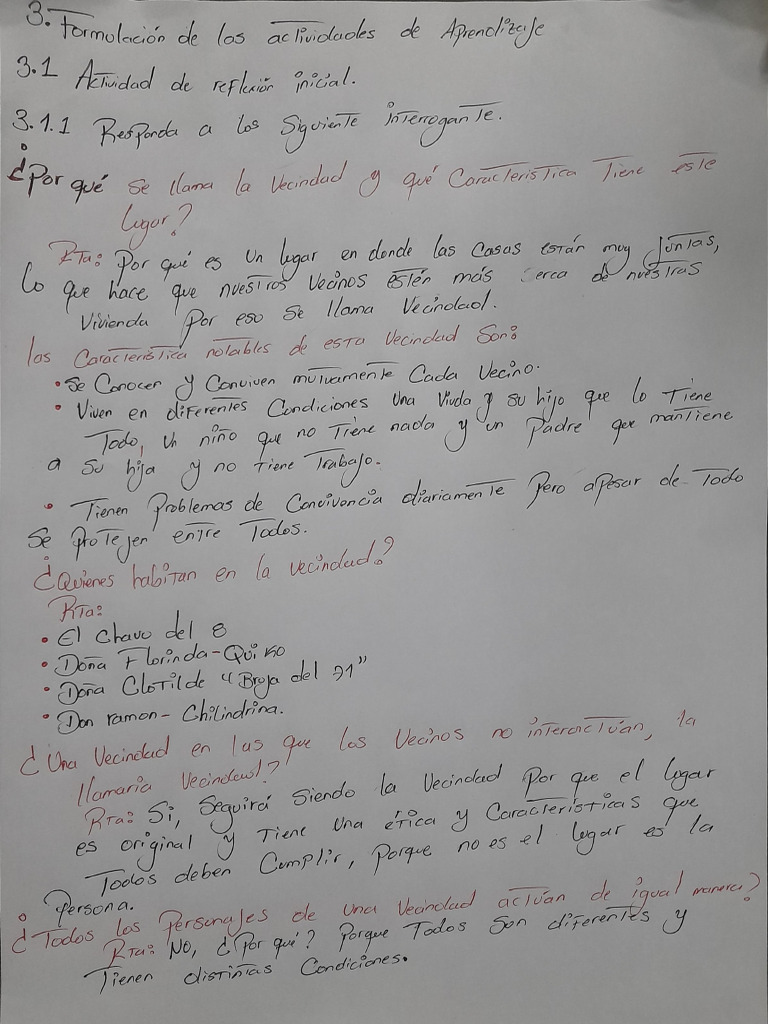 3. Formulación de las actividades de Aprendizaje
3.1 Actividad de reflexión inicial.
3.1.1 Responda a los siguiente interrogante.
¿Por qué se llama la Vecindad y qué Caracteristica Tiene este
lugar?
RTa: Por qué es un lugar en donde las casas están muy juntas,
lo que hace que nuestros Vecinos estén más cerca de nuestras
Vivienda por eso se llama Vecindad.
las Caracteristica notables de esta Vecindad son:
• Se Conocer y Conviven mutuamente Cada Vecino.
• Viven en diferentes Condiciones Una Viuda y su hijo que lo Tiene
Todo, Un niño que no Tiene nada y un Padre que mantiene
a su hija y no tiene Trabajo.
• Tienen Problemas de Convivencia diariamente Pero apesar de Todo
Se proTejen entre Todos.
¿Quienes habitan en la vecindad?
RTa:
• El Chavo del 8
• Doña Florinda - Quiko
• Doña Clotilde "Bruja del 71"
• Don ramon - Chilindrina.
¿Una Vecindad en las que los Vecinos no interactúan, la
llamaria Vecindad?
RTa: Si, Seguirá Siendo la Vecindad Por que el lugar
es original y Tiene Una ética y Características que
Todos deben Cumplir, Porque no es el lugar es la
Persona.
¿Todos los Personajes de una Vecindad actúan de igual manera?
RTa: No, ¿Por qué? Porque Todos Son diferentes y
Tienen distintas Condiciones.